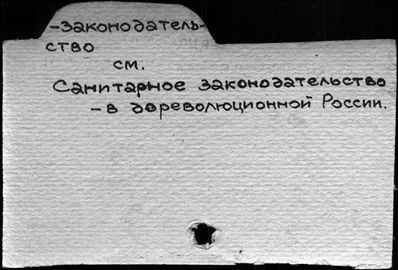 -законодатель-
ство
см.
Санитарное законодательство
-в дореволюционной России.